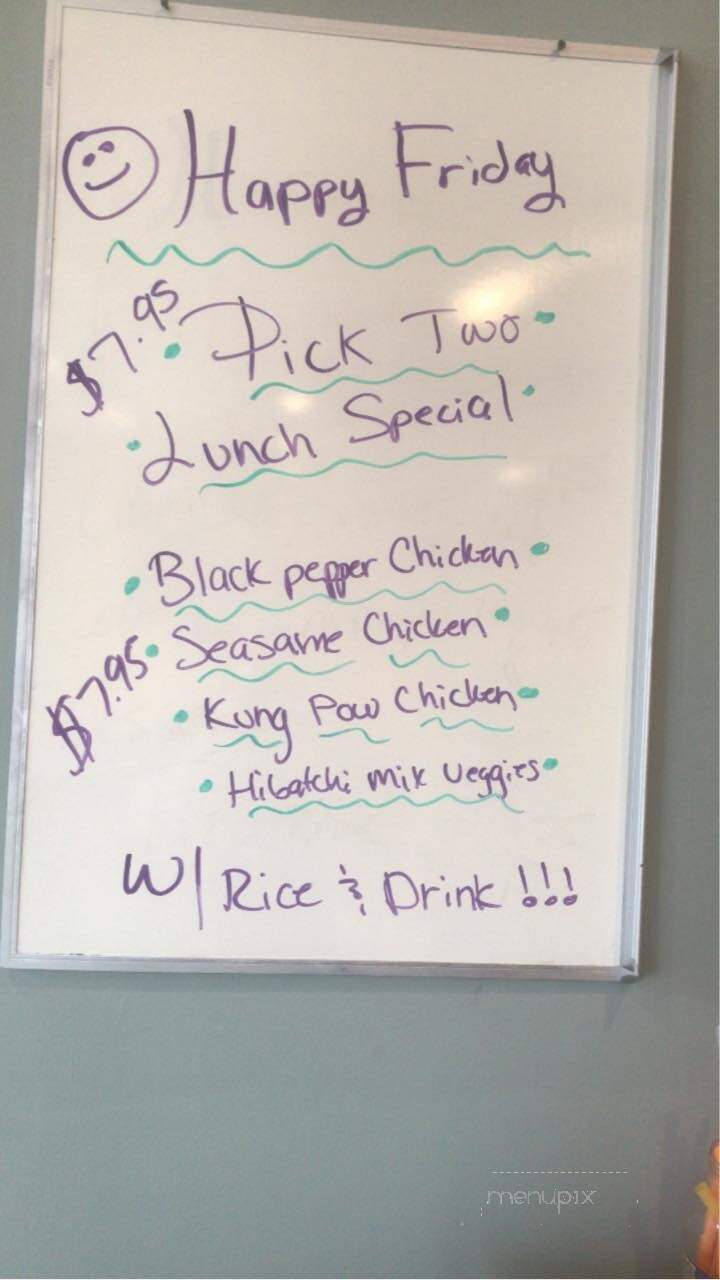 Happy Friday
$7.95
Pick Two
Lunch Special
Black pepper Chicken
$7.95
Seasame Chicken
Kung Pow Chicken
Hibatchi mix veggies
W/ Rice & Drink !!!
menupix